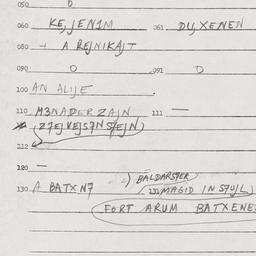 050 0
060 KEJJEN1M 061 DIJXENEN
080 + A REJNIKAJT
090 0 091 0
100 AN ALIJE
110 M3NADER ZAJN 111 —
(Z7EJ VEJS7N S7EJN)
112
120 —
130 A BATXN7 2) BALDARSTER
MAGID IN S7UJL)
FORT ARUM BATXENE